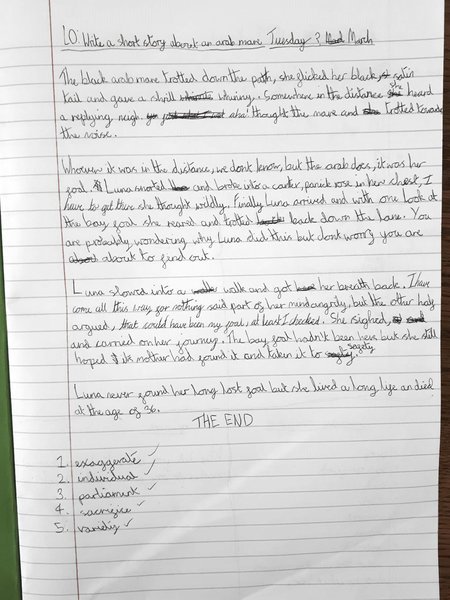 LO Write a short story about an arab mare Tuesday 3 March
The black arab mare trotted down the path, she flicked her black, satin
tail and gave a shrill whinny. Somewhere in the distance she heard
a replying neigh. aha! thought the mare and trotted towards
the noise.
Whoever it was in the distance, we dont know, but the arab does, it was her
foal. Luna snorted and broke into a canter, panick rose in here chest, I
have to get there she thought wildly. Finally Luna arrived and with one look at
the bay foal she reared and trotted back down the lane. You
are probably wondering why Luna did this but dont worry you are
about to find out.
Luna slowed into a walk and got her breath back. I have
come all this way for nothing said part of her mind angrily, but the other half
argued, that could have been my foal, at least I checked. She sighed,
and carried on her journey. The bay foal hadn't been hers but she still
hoped its mother had found it and taken it to safety.
Luna never found her long lost foal but she lived a long life an died
at the age of 36.
THE END
1. exaggerate ✓
2. individual ✓
3. parliament ✓
4. sacrifice ✓
5. variety ✓